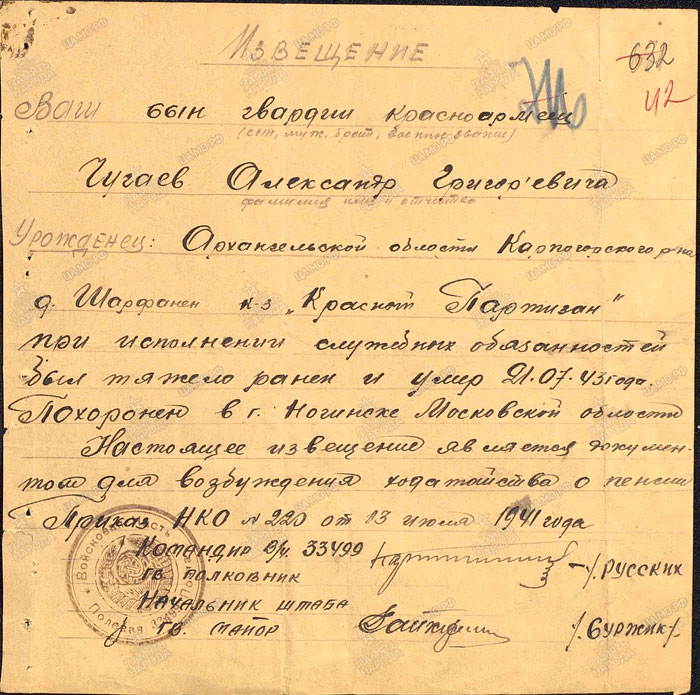 Извещение
632
42
Ваш сын гвардии красноармеец
(сын, муж, брат, военное звание)
Чугаев Александр Григорьевича
фамилия имя и отчество
Урожденец: Архангельской области Карпогорского р-на
д. Шарфанен к-з „Красный Партизан"
при исполнении служебных обязанностей
был тяжело ранен и умер 21.07.43 года.
Похоронен в г. Ногинске Московской области
Настоящее извещение является докумен-
том для возбуждения ходатайства о пенсии
Приказ НКО № 220 от 13 июля 1941 года
Командир в/ч. 33499
гв. полковник /. Русских
Начальник штаба
гв. майор /Буржик/.
Войсковая часть
Полевая